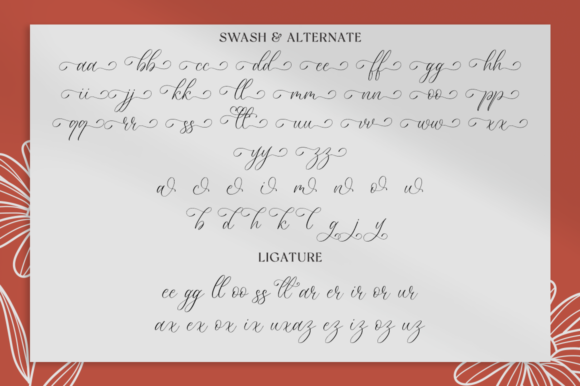 SWASH & ALTERNATE
aa bb cc dd ee ff gg hh
ii jj kk ll mm nn oo pp
qq rr ss tt uu vv ww xx
yy zz
a c e i m n o u
b d h k l g j y
LIGATURE
ee gg ll oo ss tt ar er ir or ur
ax ex ox ix ux az ez iz oz uz